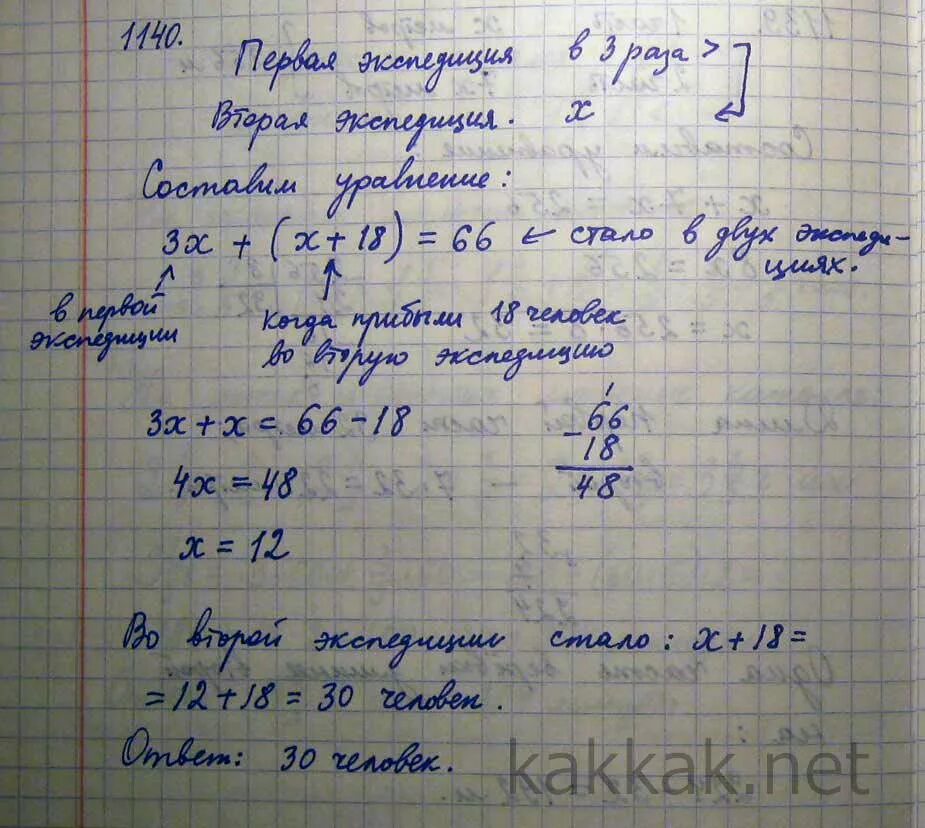 1140.
Первая экспедиция в 3 раза >
Вторая экспедиция. x
Составим уравнение:
3x + (x + 18) = 66 ← стало в двух экспеди-
циях.
в первой
экспедиции
когда прибыли 18 человек
во вторую экспедицию
3x + x = 66 - 18
4x = 48
x = 12
1
66
- 18
48
Во второй экспедиции стало: x + 18 =
= 12 + 18 = 30 человек.
Ответ: 30 человек.
kakkak.net